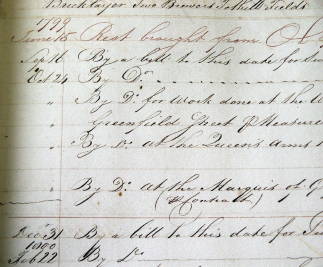 Bricklayer Two Brewers Tothill Fields
1799
June 15 Rest brought from
Sep 16 By a bill to this date for
Oct 24 By Do
" By Do for Work done at the
Greenfield Street p Measure
" By Do at the Queen's Arms
" By Do At the Marquis of G
(p Contract)
Dec 31 By a bill to this date for
1800
Feb 22 By Do